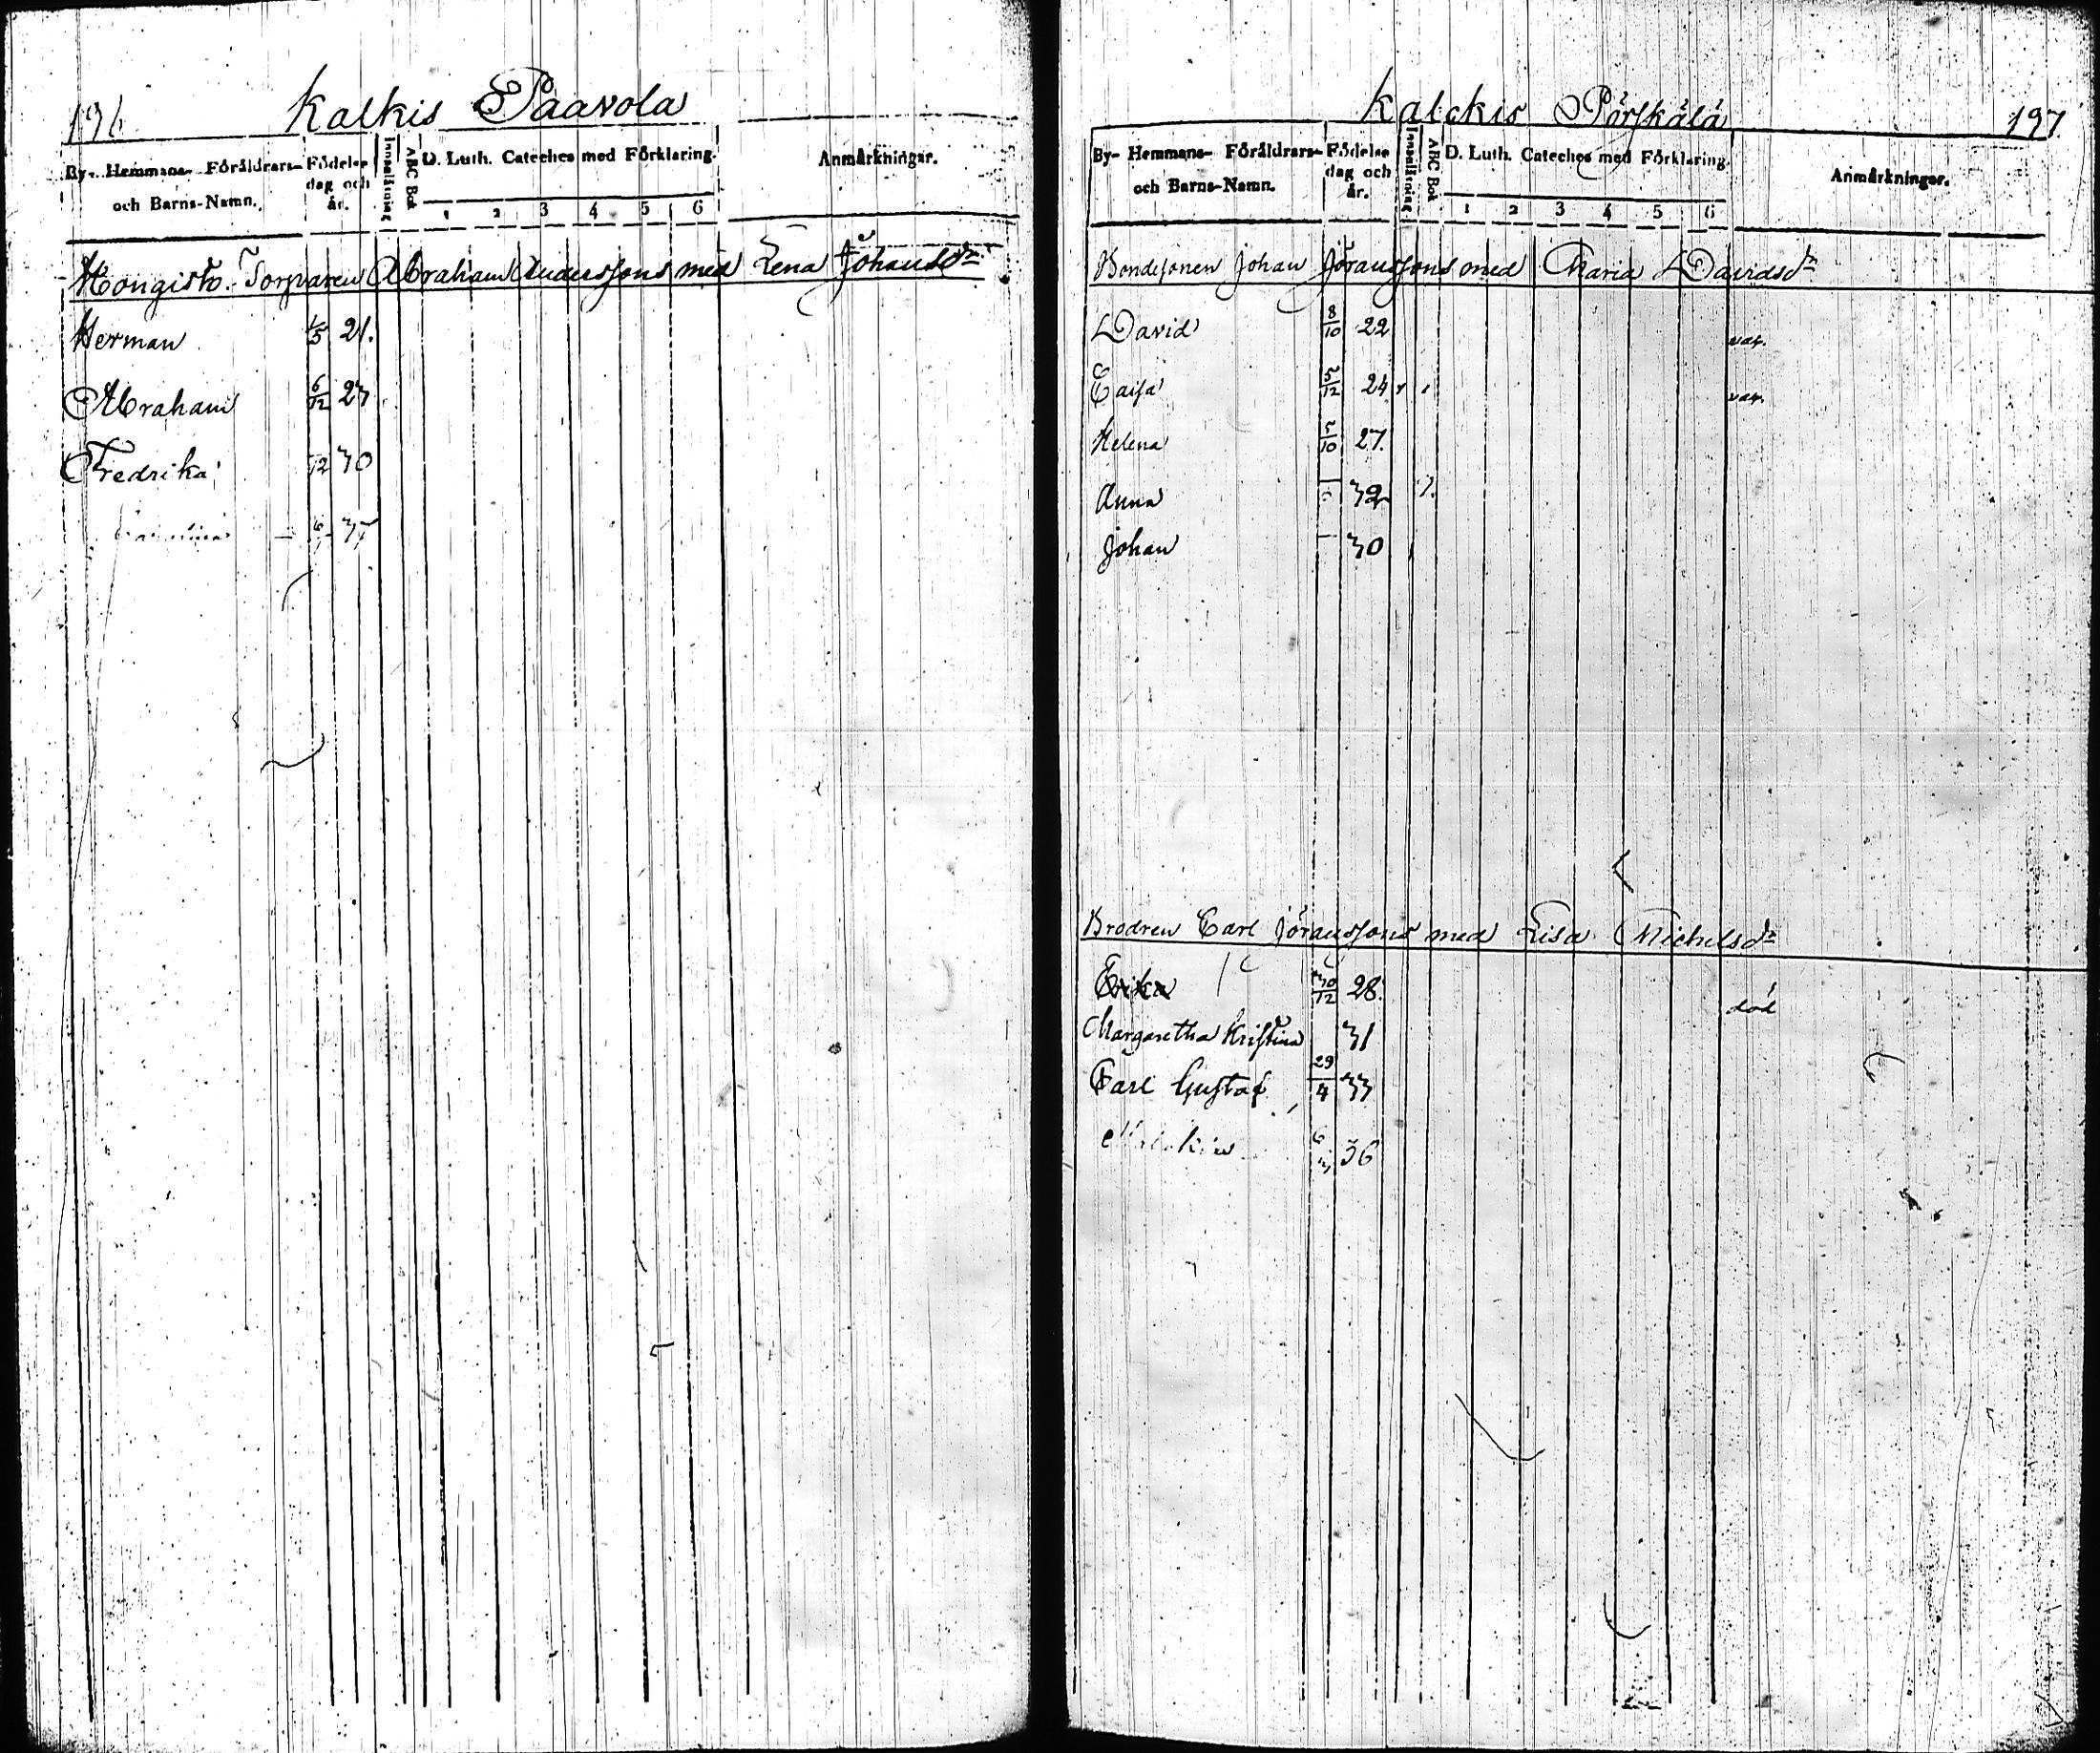 196
Kalkis Paavola
By- Hemmans- Föräldrars- och Barns-Namn.
Födelse dag och år.
Innanläsning
ABC Bok
D. Luth. Cateches med Förklaring.
1 2 3 4 5 6
Anmärkningar.
Hongisto. Torparen Abraham Anderssons med Lena Johansdr
Herman 1/5 21.
Abraham 6/12 27
Fredrika 12 30
197
Kalckis Pärskälä
By- Hemmans- Föräldrars- och Barns-Namn.
Födelse dag och år.
Innanläsning
ABC Bok
D. Luth. Cateches med Förklaring.
1 2 3 4 5 6
Anmärkningar.
Bondesonen Johan Jöranssons med Maria Davidsdr
David 8/10 22 vac.
Caisa 5/12 24 vac.
Helena 5/10 27.
Anna 32
Johan 30
Brodren Carl Jöranssons med Lisa Michelsdr
Erika 30/12 28. död
Margaretha Kristina 31
Carl Gustaf 29/4 33
36